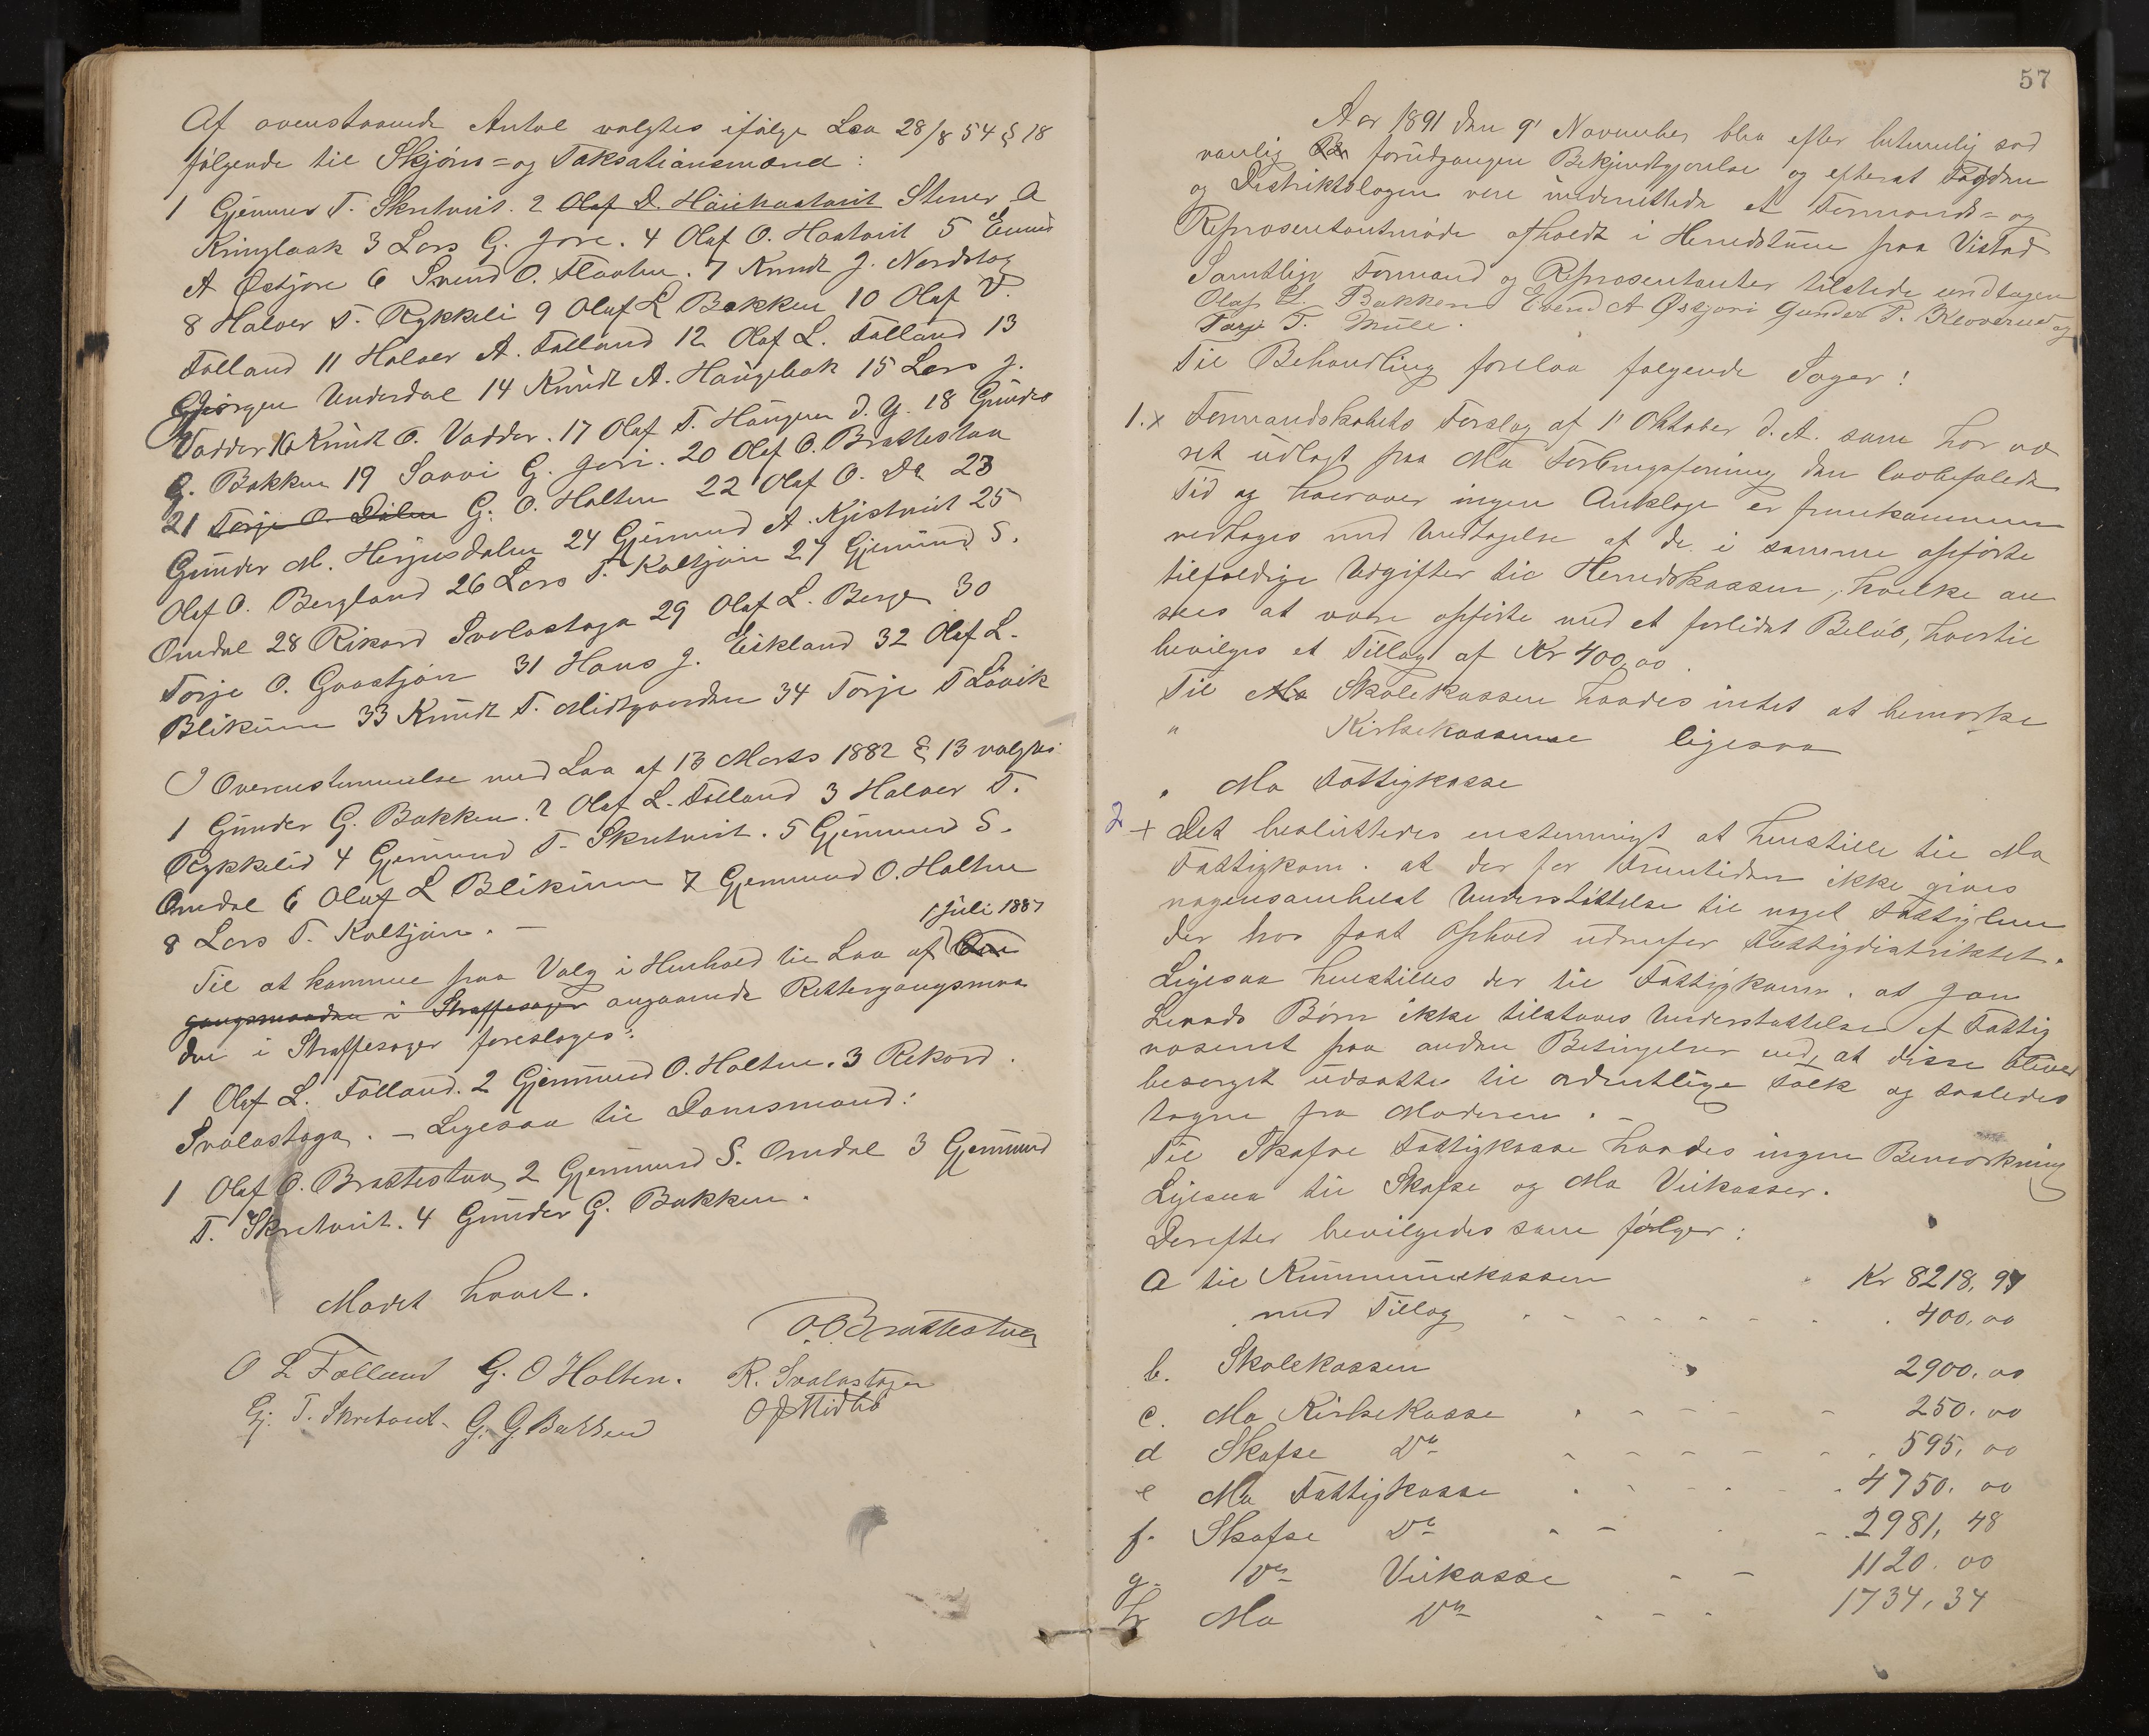 Af ovenstaaende Antal valgtes ifølge Lov 28/8 54 § 18
følgende til Skjøns= og Taksationsmænd:
1 Gjermund T. Skretveit. 2 Olaf D. Stener A
Kringlaak 3 Lars G. Jore. 4 Olaf O. Haatveit 5 Eivind
A Østjore 6 Svend O. Flaaten. 7 Knudt J. Nordstog
8 Halvor T. Rykkeli 9 Oluf L Bakken 10 Olaf V.
Falland 11 Halvor A. Falland 12 Olaf L. Falland 13
Gjørgen Underdal 14 Knudt A. Haugebak 15 Lars J.
Vadder 16 Knudt O. Vadder. 17 Olaf T. Haugen d. y. 18 Gunder
G. Bakken 19 Saavi G. Jori. 20 Olaf O. Brattestaa
21 Torje O. Dalen G. O. Holten 22 Olaf O. Da 23
Gunder M. Herjusdalen 24 Gjermund A. Kjistveit 25
Olaf O. Bergland 26 Lars T. Kaltjøn 27 Gjermund S.
Omdal 28 Rikard Svalastoga 29 Olaf L. Berge 30
Torje O. Gaastjøn 31 Hans J. Eikland 32 Olaf L.
Blikum 33 Knudt T. Midtgaarden 34 Torje T Lavik
I Overensstemmelse med Lov af 13 Marts 1882 § 13 valgtes
1 Gunder G. Bakken. 2 Olaf L. Falland 3 Halvor T.
Rykkelid 4 Gjermund T. Skretveit. 5 Gjermund S.
Omdal 6 Oluf L Blikum 7 Gjermund O. Holten
8 Lars T. Kaltjøn. –
1 Juli 1887
Til at komme paa Valg i Henhold til Lov af
gangsmaaden i Straffesager angaaende Rettergangsmaa
den i Straffesager foreslages:
1 Olaf L. Falland. 2 Gjermund O. Holten. 3 Rekard
Svalastoga. – Ligesaa til Domsmænd:
1 Olaf O. Brattestaa, 2 Gjermund S. Omdal 3 Gjermund
T. Skretveit. 4 Gunder G. Bakken.
Mødet hævet.
O.O Brattestaa
O L Falland G. O Holten. R. Svalastoga
Gj. T. Skretveit. G. G. Bakken O J Midtbø
57
Aar 1891 den 9' November blev efter betimelig sed
vanlig forudgangen Bekjendtgjørelse og efterat Fogden
og Distriktslægen vare underrettede et Formands= og
Repræsentantmøde afholdt i Heredstuen paa Vistad
Samtlige Formænd og Repræsentanter tilstede undtagen
Olaf L. Bakken Evend A Østjori Gunder P. Kleverud og
Torje T. Mule.
Til Behandling forelaa følgende Sager:
1. x Formandskabets Forslag af 1' Oktober d. A. som har væ
ret udlagt paa Mo Forbrugsforening den lovbefalede
Tid og hvorover ingen Anklage er fremkommen
vedtoges med Undtagelse af de i samme opførte
tilfældige Udgifter til Heredskassen, hvilke an
sees at være opførte med et forlidet Beløb, hvortil
bevilges et Tillæg af Kr 400,00.
Til Mo Skolekassen havdes intet at bemærke
" Kirkekasserne ligesaa
" Mo Fattigkasse
2 + Det besluttedes enstemmigt at henstille til Mo
Fattigkom. at der for Fremtiden ikke gives
nogensomhelst Understøttelse til noget Fattiglem
der har faat Ophold udenfor Fattigdistriktet.
Ligesaa henstilles der til Fattigkom. at Jon
Børn ikke tilstaaes Understøttelse af Fattig
væsenet paa anden Betingelse end, at disse bliver
besørget udsatte til ordentlige Folk og saaledes
tagne fra Moderen. –
Til Skafse Fattigkasse havdes ingen Bemærkning
Ligesaa til Skafse og Mo Veikasser.
Derefter bevilgedes som følger:
a til Kummunekassen Kr 8218,97
med Tillæg 400,00
b. Skolekassen 2900,00
c. Mo Kirkekasse 250,00
d Skafse Do 595,00
e Mo Fattigkasse 4750,00
f. Skafse Do 2981,48
g. Do Veikasse 1120.00
h Mo Do 1734,34